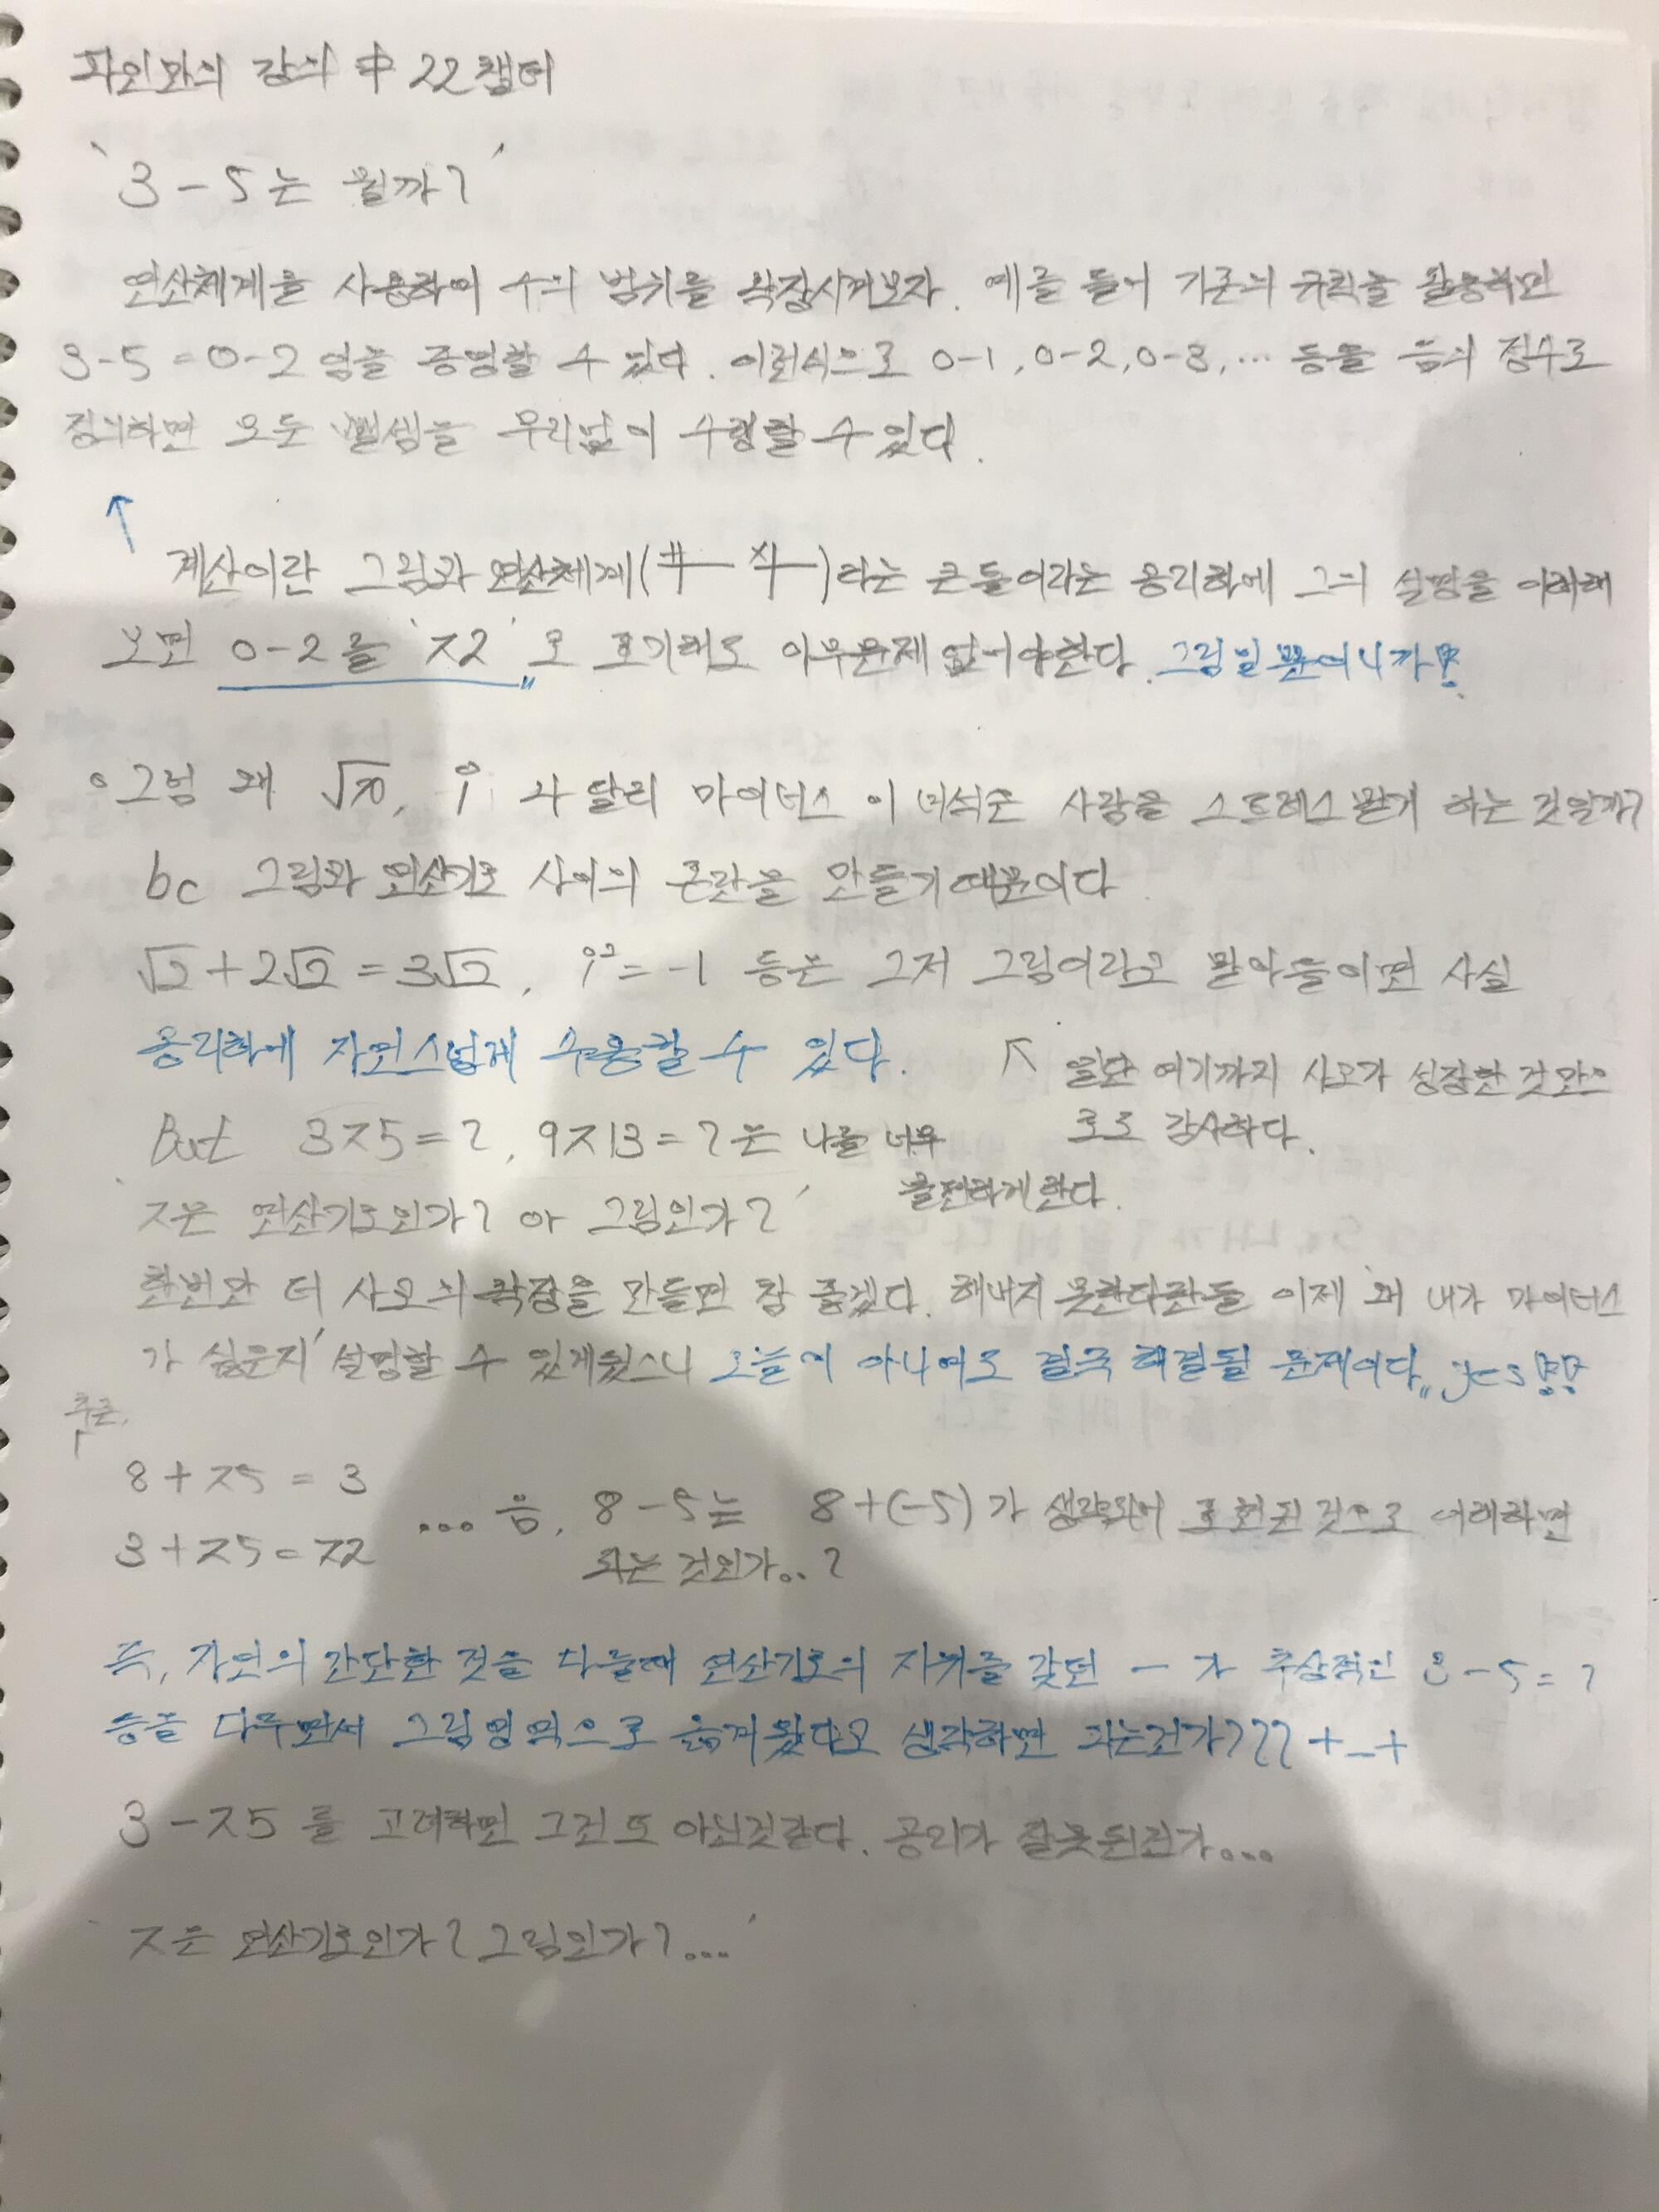 파인만의 강의 中 22챕터
'3-5는 뭘까?'
연산체계를 사용하여 수의 범위를 확장시켜보자. 예를 들어 기존의 규칙을 활용하면
3-5=0-2 임을 증명할 수 있다. 이런식으로 0-1, 0-2, 0-3, … 등을 음의 정수로
정의하면 모든 뺄셈을 무리없이 수행할 수 있다.
↑
계산이란 그림과 연산체계( )라는 큰 틀이라는 공리하에 그의 설명을 이해해
보면 0-2를 'ㅈ2'로 표기해도 아무문제 없어야한다. 그림일 뿐이니까!
그럼 왜 √10, i 와 달리 마이너스 이 녀석은 사람을 스트레스받게 하는 것일까?
bc 그림과 연산기호 사이의 혼란을 만들기 때문이다
√2+2√2=3√2, i²=-1 등은 그저 그림이라고 받아들이면 사실
공리하에 자연스럽게 수용할 수 있다.
↖ 일단 여기까지 사고가 성장한 것만으
로도 감사하다.
But 3ㅈ5=?, 9ㅈ13=?은 나를 너무
불편하게 한다.
'ㅈ은 연산기호인가? 아 그림인가?'
한번만 더 사고의 확장을 만들면 참 좋겠다. 해내지 못한다한들 이제 '왜 내가 마이너스
가 싫은지' 설명할 수 있게됐으니 오늘이 아니어도 결국 해결될 문제이다. yes!!
추론.
8+ㅈ5=3
3+ㅈ5=ㅈ2
… 음, 8-5는 8+(-5)가 생략되어 표현된 것으로 이해하면
되는 것인가..?
즉, 자연의 간단한 것을 다룰때 연산기호의 지위를 갖던 -가 추상적인 3-5=?
등을 다루면서 그림영역으로 옮겨왔다고 생각하면 되는건가??? +_+
3-ㅈ5를 고려하면 그런 것도 아닌것같다. 공리가 잘못된건가...
'ㅈ은 연산기호인가? 그림인가?...'